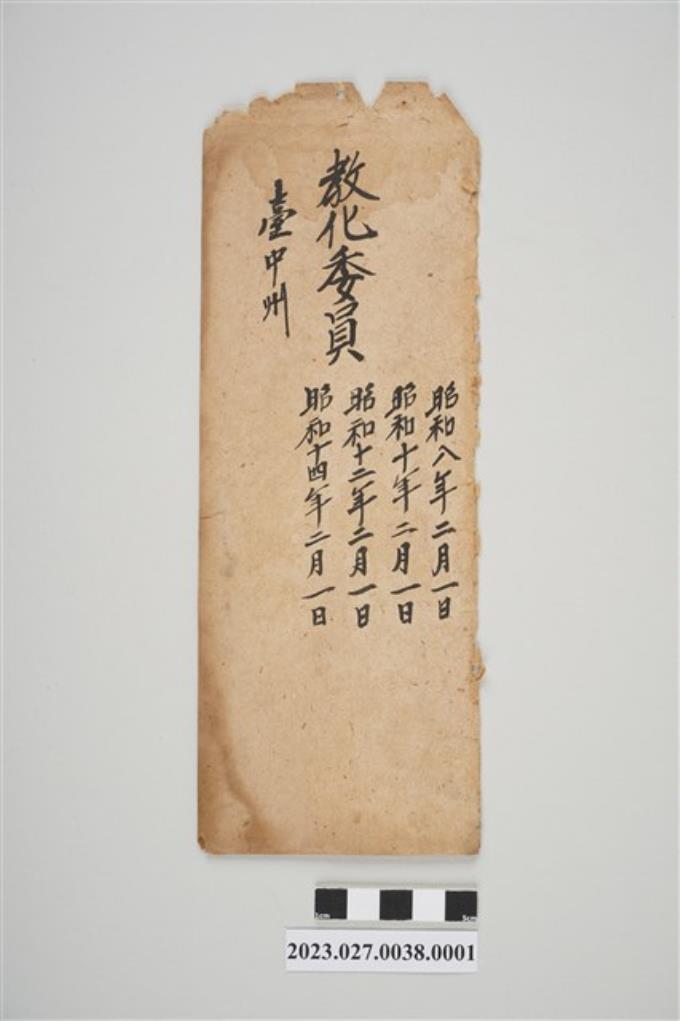 昭和八年二月一日
昭和十年二月一日
昭和十二年二月一日
昭和十四年二月一日
教化委員
臺中州
1cm
5cm
2023.027.0038.0001